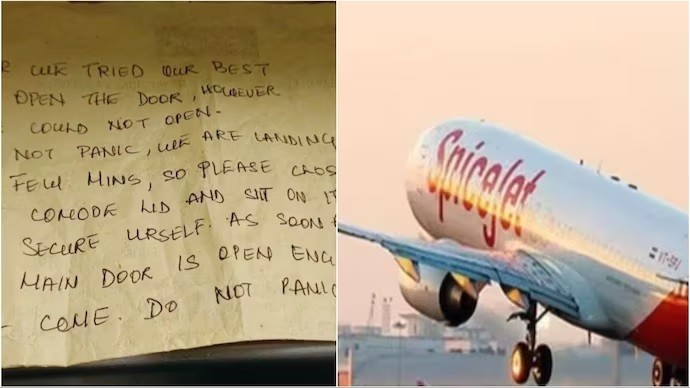 R WE TRIED OUR BEST
OPEN THE DOOR, HOWEVER
COULD NOT OPEN.
NOT PANIC, WE ARE LANDING
FEW MINS, SO PLEASE CLOS
COMODE LID AND SIT ON IT
SECURE URSELF. AS SOON A
MAIN DOOR IS OPEN ENG
COME. DO NOT PANIC
SpiceJet